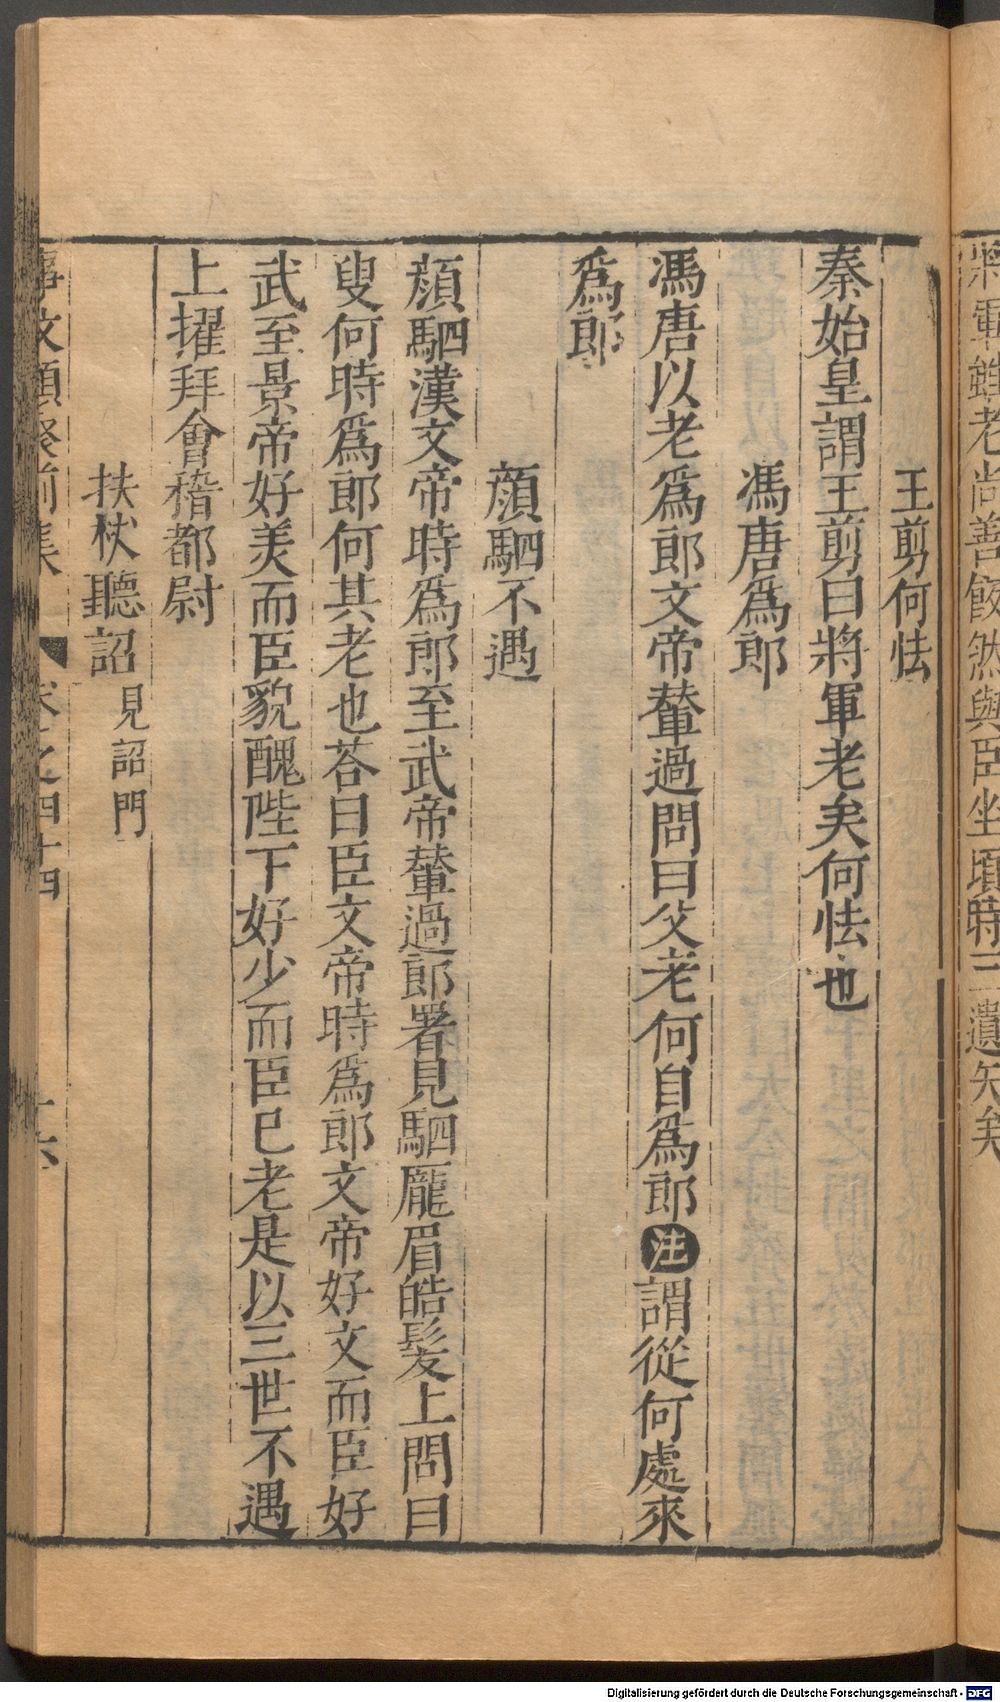 將軍雖老尚善飯然與臣坐頃時三遺矢矣
王剪何怯
秦始皇謂王剪曰將軍老矣何怯也
馮唐爲郎
馮唐以老爲郎文帝輦過問曰父老何自爲郎注謂從何處來
爲郎
顔駟不遇
顔駟漢文帝時爲郎至武帝輦過郎署見駟龐眉皓髮上問曰
叟何時爲郎何其老也荅曰臣文帝時爲郎文帝好文而臣好
武至景帝好美而臣貌醜陛下好少而臣已老是以三世不遇
上擢拜會稽都尉
扶杖聽詔見詔門
事文類聚前集 卷之四十四 十六
Digitalisierung gefördert durch die Deutsche Forschungsgemeinschaft - DFG